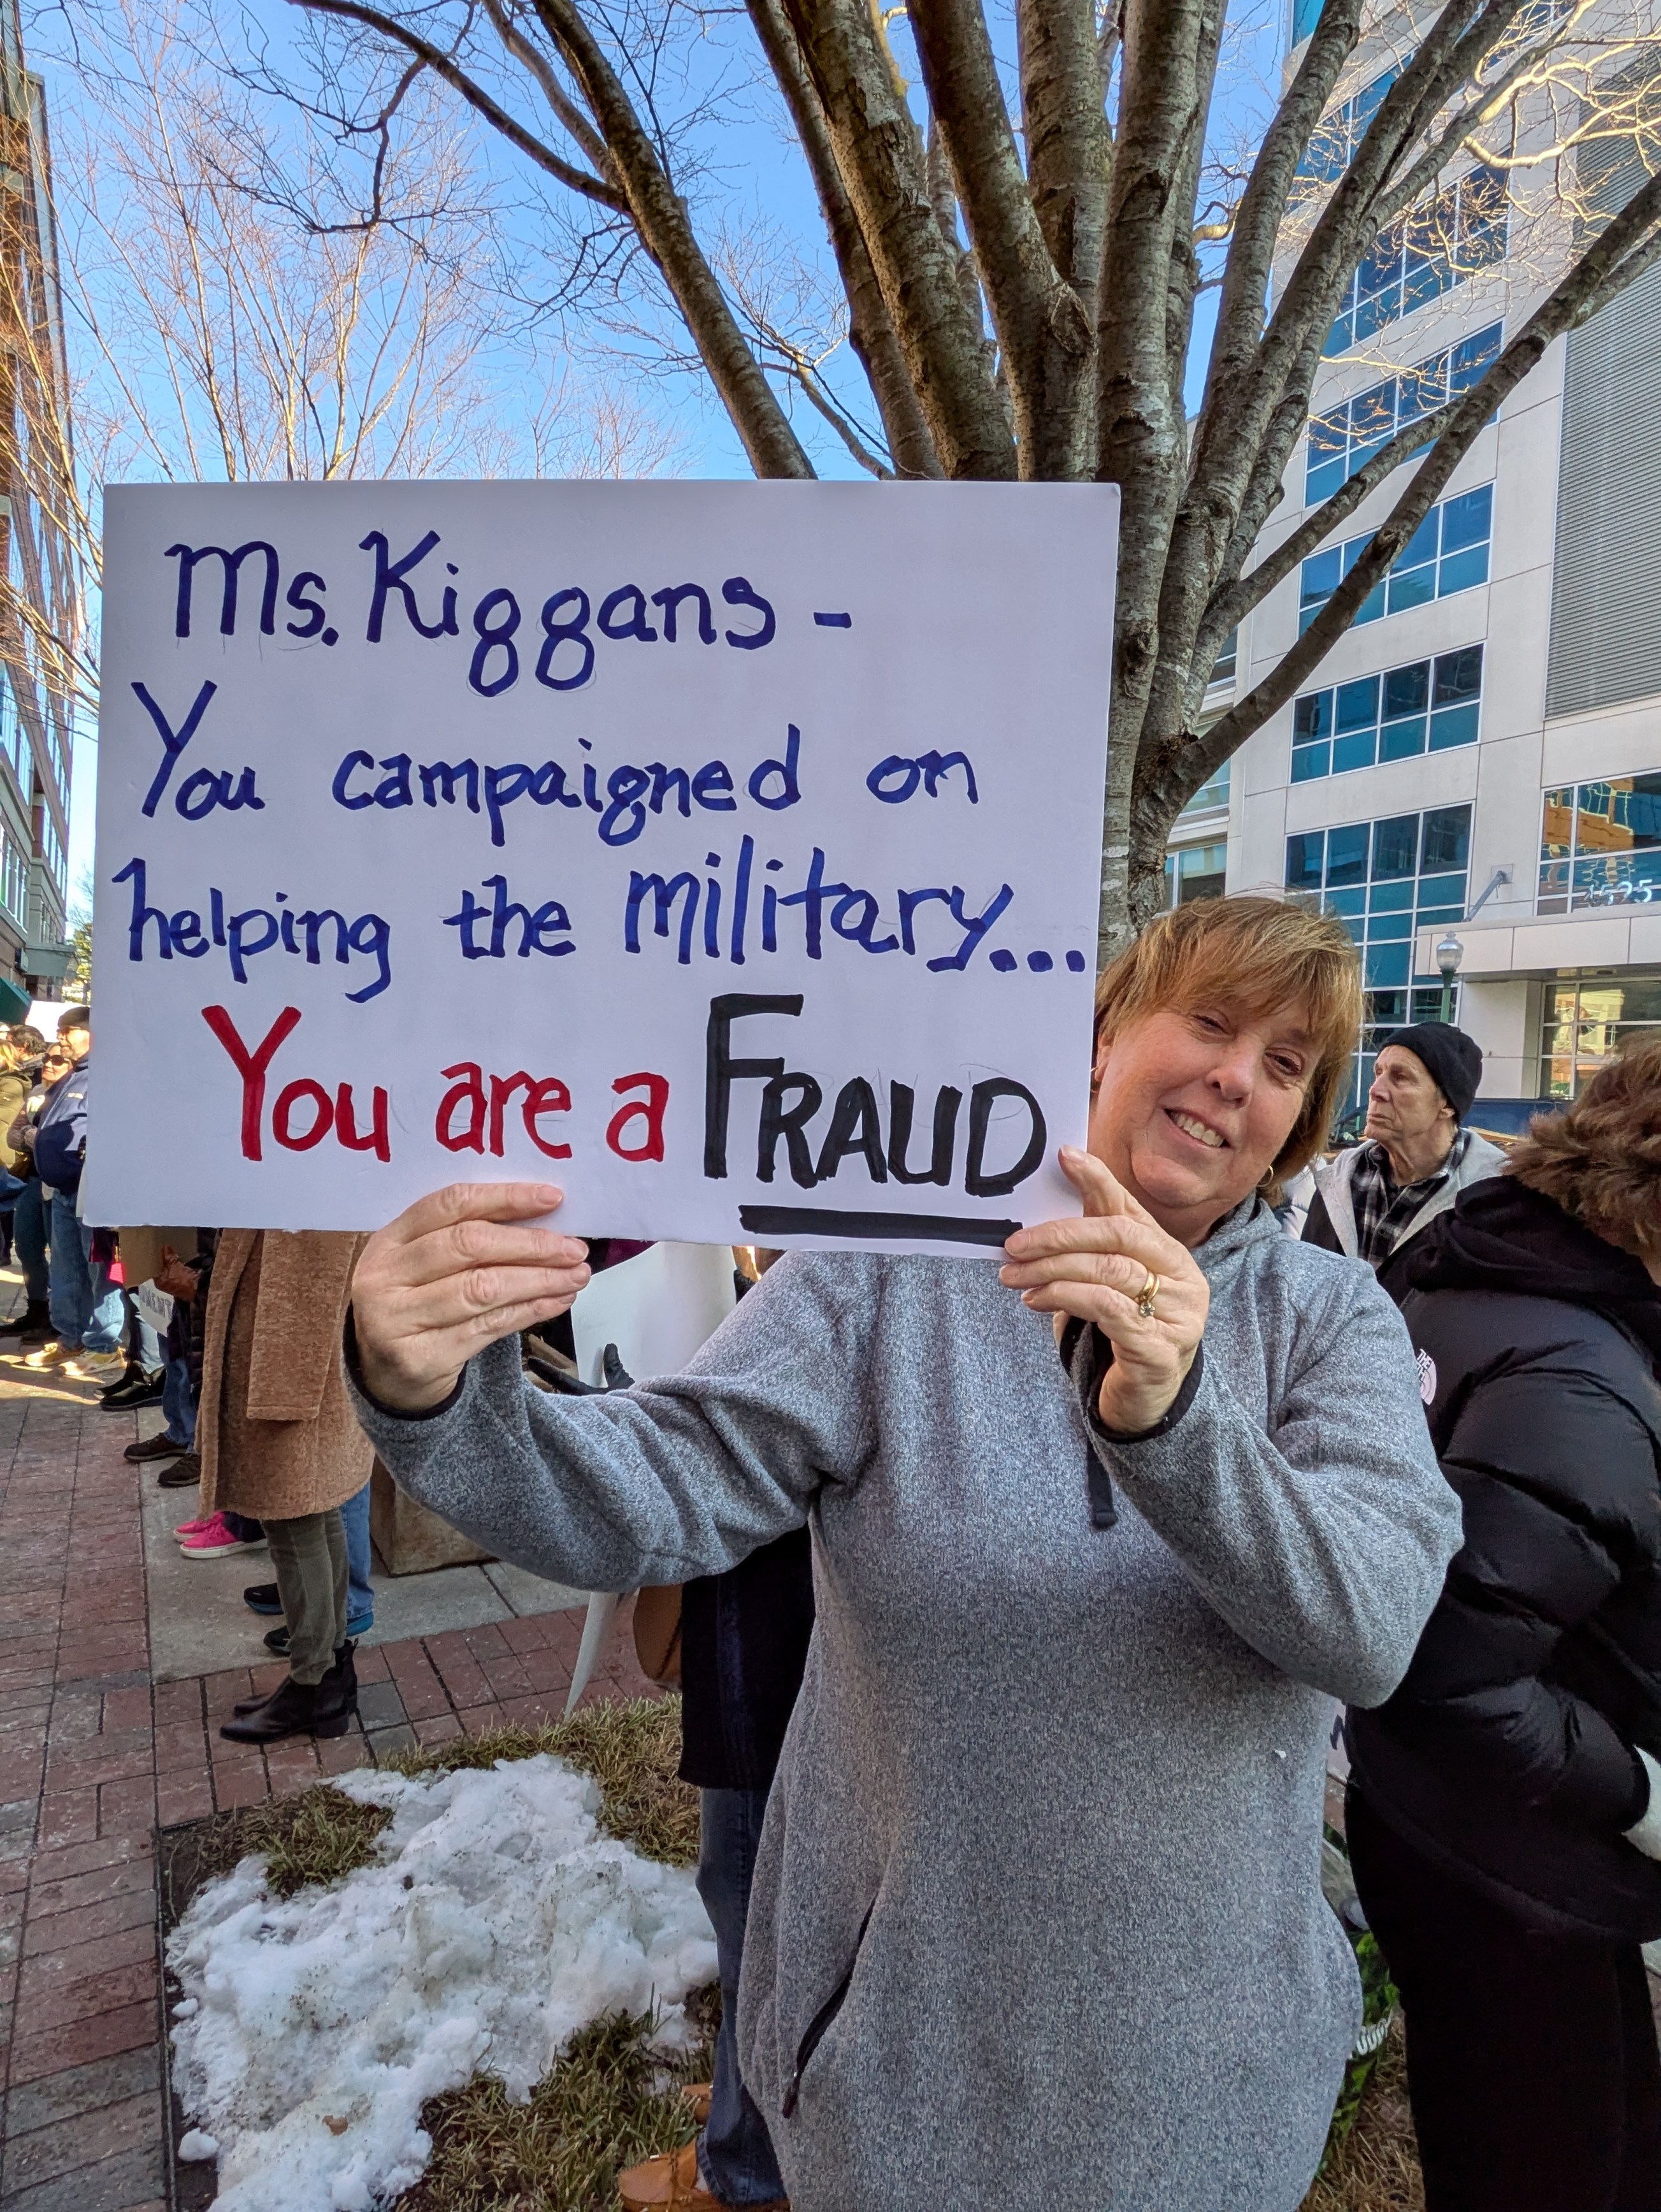 Ms. Kiggans -
You campaigned on
helping the military...
You are a FRAUD
THE
4525